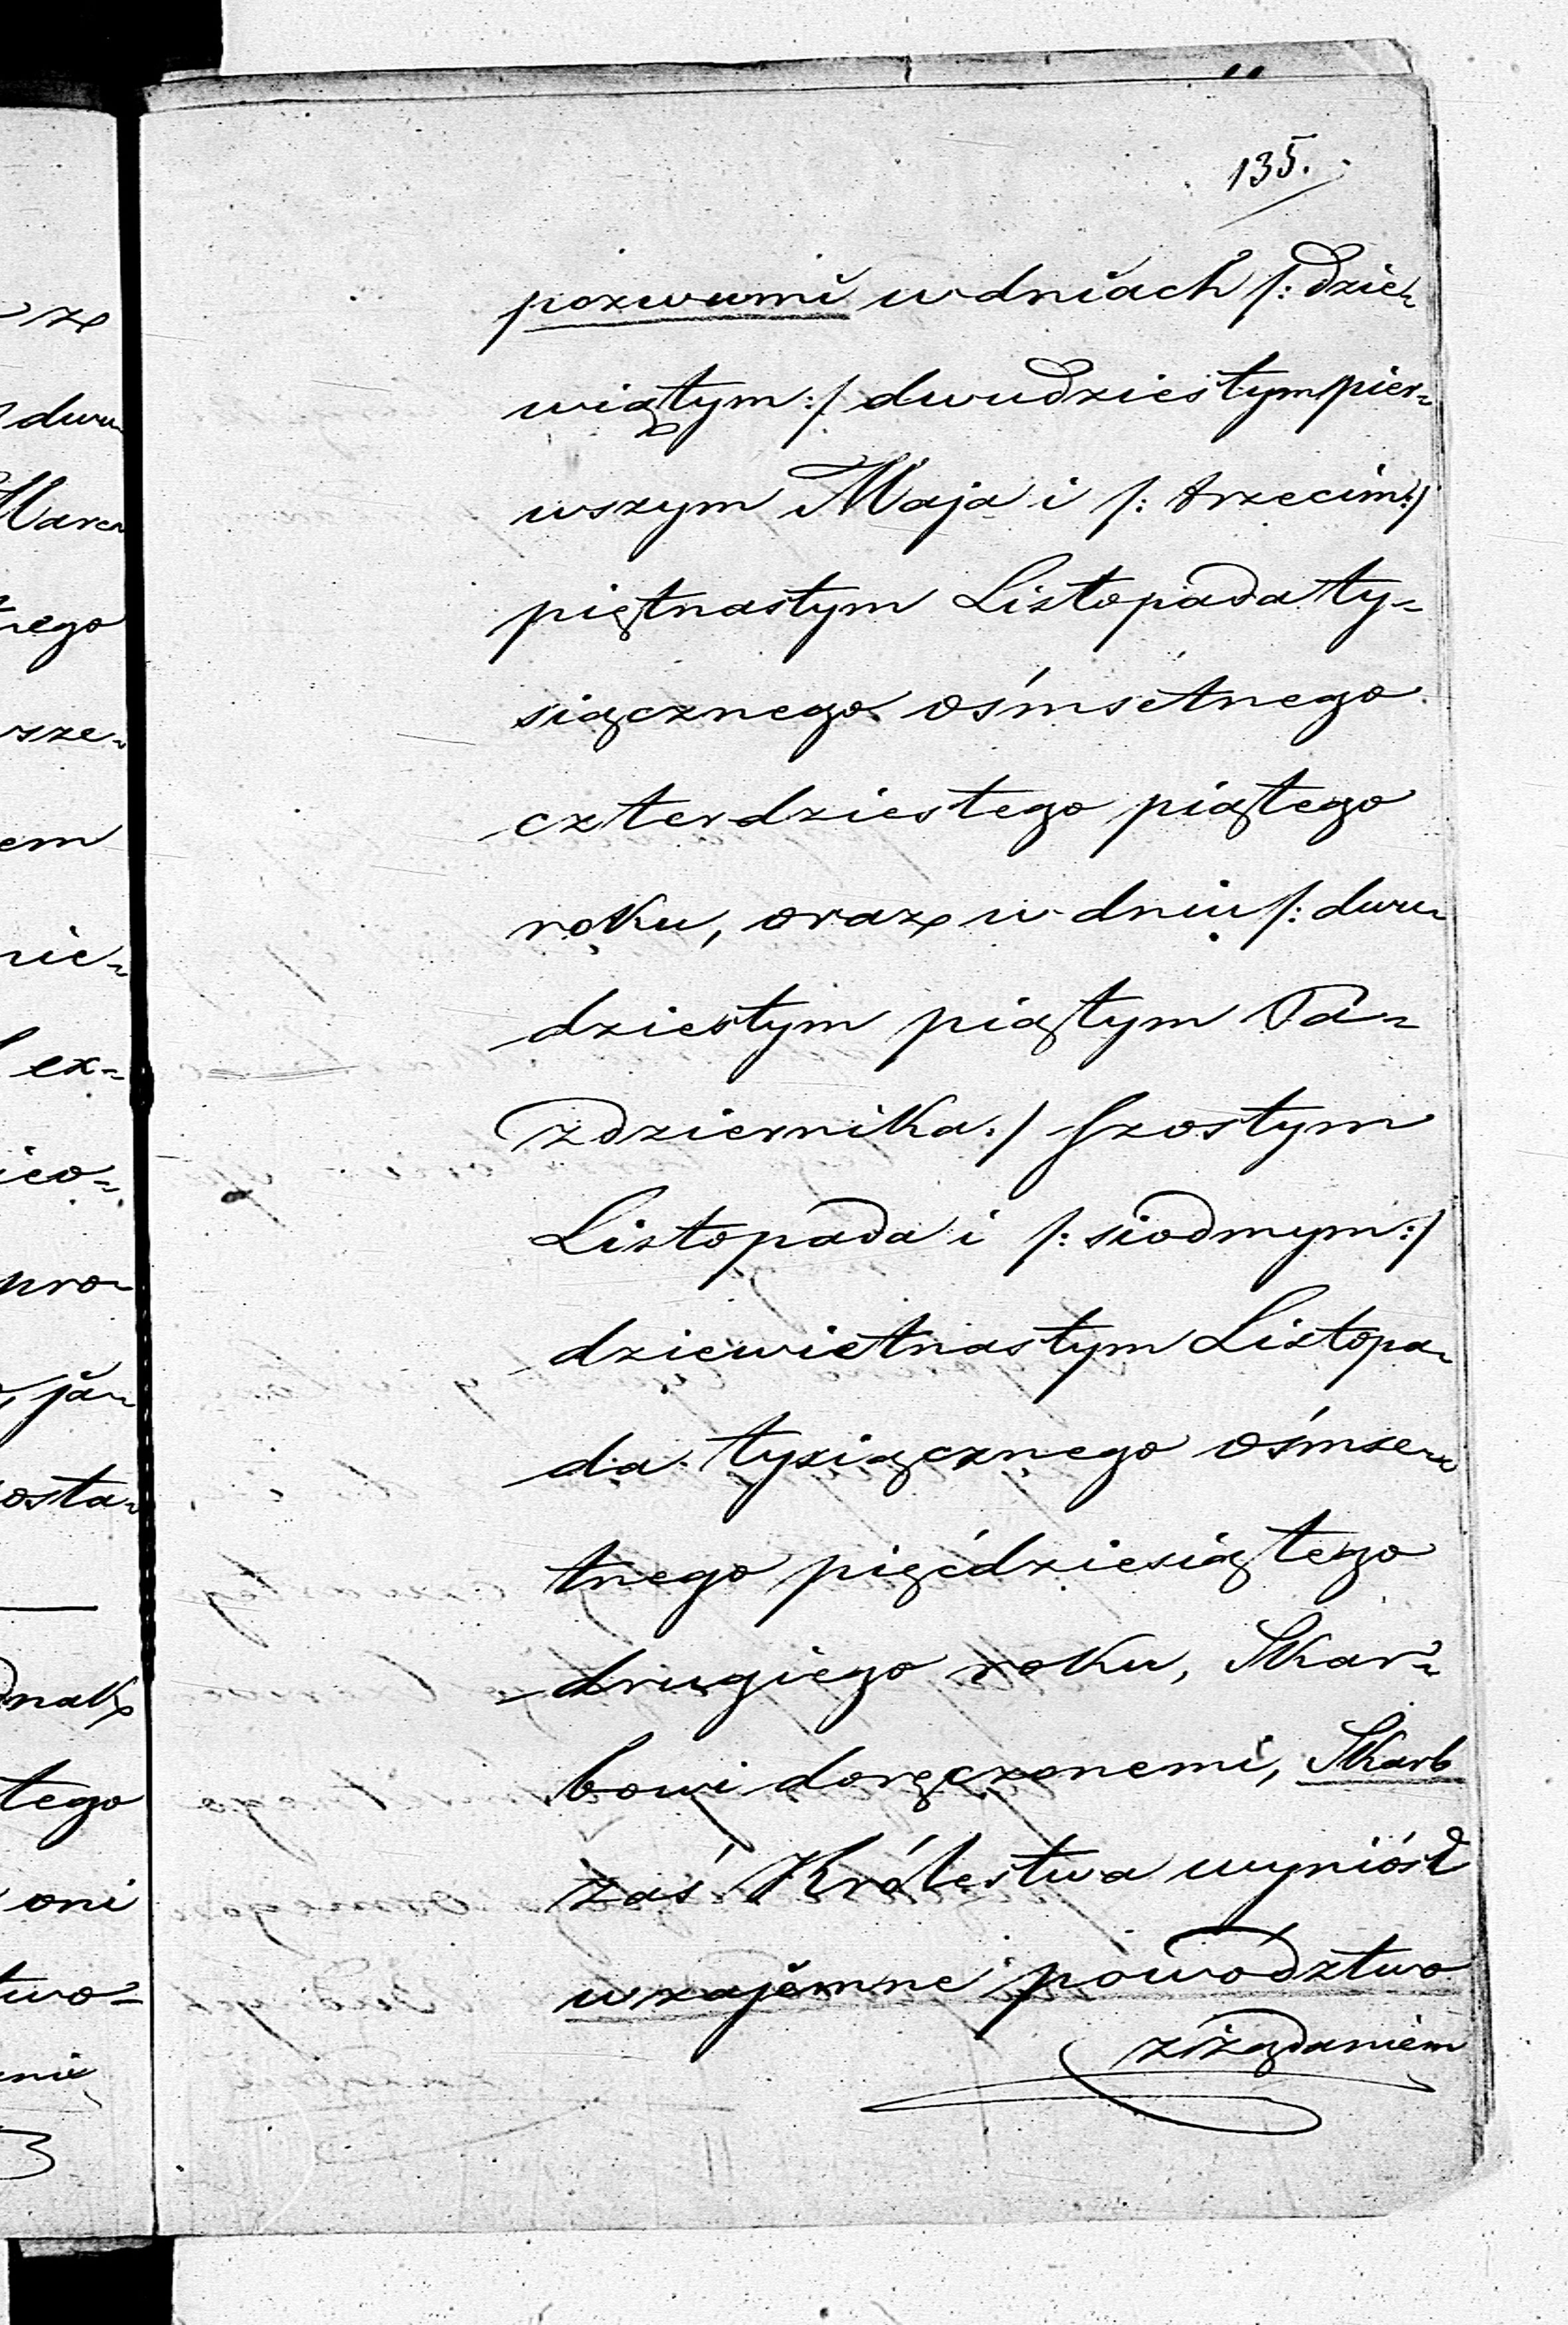 135.
pozwami w dniach /: dzie-
wiątym :/ dwudziestym pier-
wszym Maja i /: trzecim :/
piętnastym Listopada ty-
siącznego ośmsetnego
czterdziestego piątego
roku, oraz w dniu /: dwu-
dziestym piątym Pa-
zdziernika :/ szostym
Listopada i /: siodmym :/
dziewietnastym Listopa-
da tysiącznego ośmse-
tnego pięćdziesiątego
drugiego roku, Skar-
bowi doręczonemi, Skarb
zaś Królestwa wyniósł
wzajemne powodztwo
z żądaniem
dwu
nego
sze-
em
nie-
ex-
pro-
ją-
osta-
tego
oni
two-